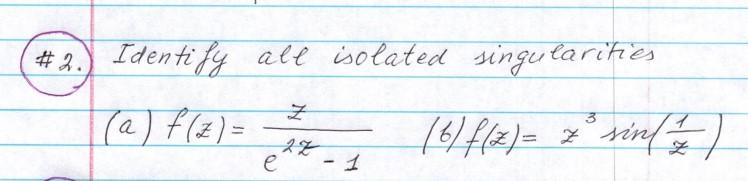 #2. Identify all isolated singularities
(a) f(z) = z / (e^{2z} - 1) (b) f(z) = z^3 sin(1/z)